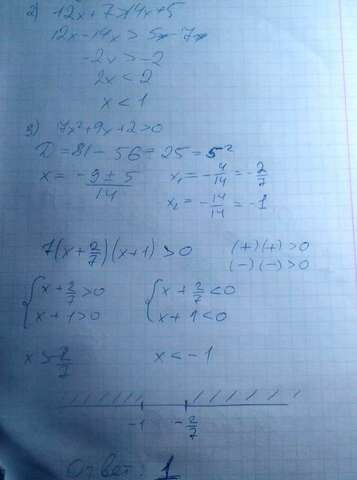 2) 12x+7>14x+5
12x-14x > 5-7
-2x > -2
2x < 2
x < 1
3) 7x²+9x+2>0
D = 81 - 56 = 25 = 5²
x = -9 ± 5 / 14 x₁ = -4/14 = -2/7
x₂ = -14/14 = -1
7(x+2/7)(x+1) > 0 (+)(+) > 0
(-)(-) > 0
{ x+2/7 > 0 { x+2/7 < 0
x+1 > 0 x+1 < 0
x > -2/7 x < -1
-1 -2/7
Ответ: 1